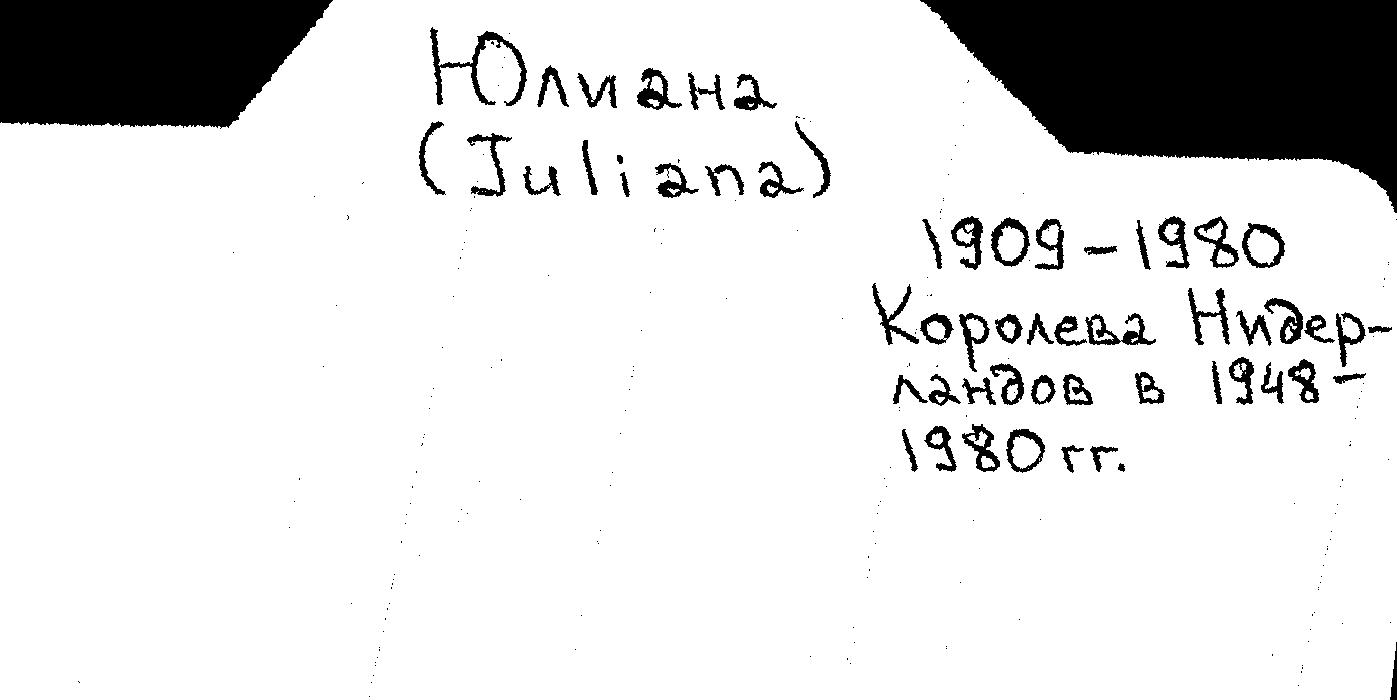 Юлиана
(Juliana)
1909-1980
Королева Нидер-
ландов в 1948-
1980 гг.